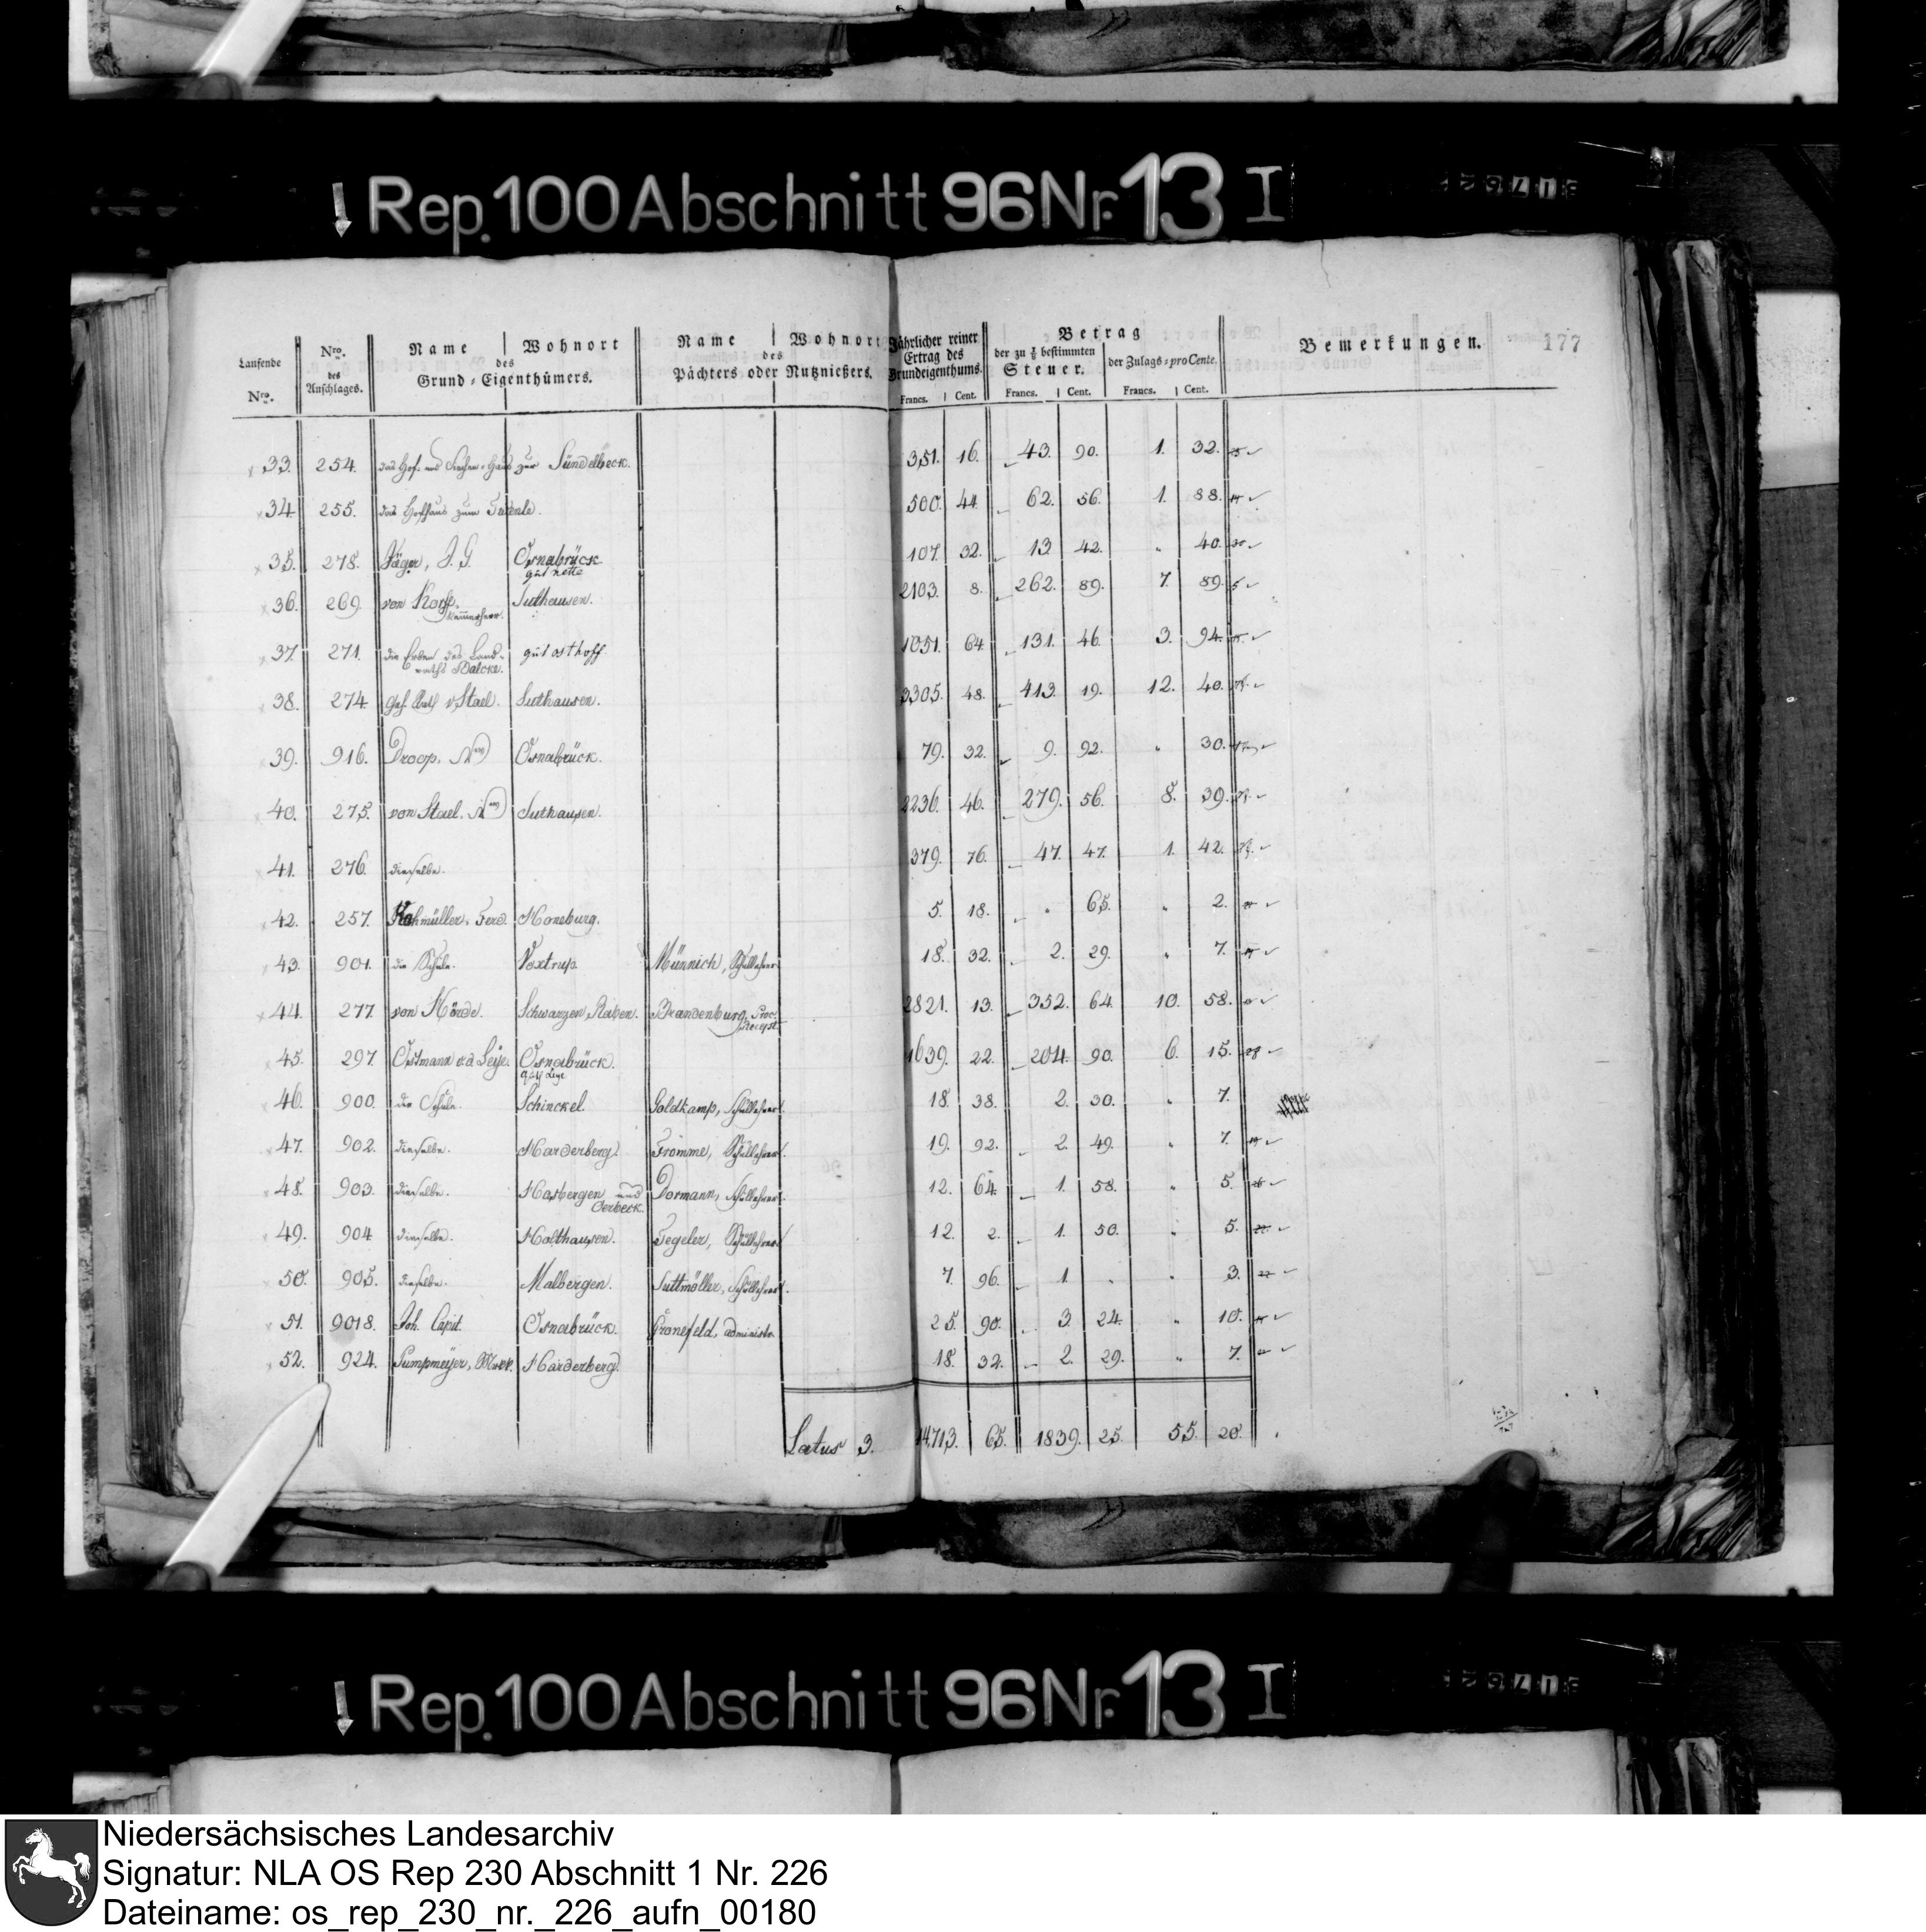 Rep. 100 Abschnitt 96 Nr. 13 I
177
Laufende Nro.
Nro. des Anschlages.
Name | Wohnort
des
Grund-Eigenthümers.
Name | Wohnort
des
Pächters oder Nutznießers.
Jährlicher reiner Ertrag des Grundeigenthums.
Francs. | Cent.
Betrag
der zu ⅛ bestimmten Steuer.
Francs. | Cent.
der Zulags-proCente.
Francs. | Cent.
Bemerkungen.
33. 254. das Hof- und Siechen-Haus zur Süntelbeck. 351. 16. 43. 90. 1. 32.
34. 255. das Hofhaus zum 500. 44. 62. 56. 1. 88.
35. 278. Jäger, J. G. Osnabrück 107. 32. 13. 42. " 40.
gut nette
36. 269. von Korff, Suthausen. 2103. 8. 262. 89. 7. 89.
Kammerherr.
37. 271. die Erben des Land- gut osthoff 1051. 64. 131. 46. 3. 94.
raths Balcke.
38. 274. Geh. Rath v. Stael. Suthausen. 3305. 48. 413. 19. 12. 40.
39. 916. Droop, Osnabrück. 79. 32. 9. 92. " 30.
40. 275. von Stael. Suthausen. 2236. 46. 279. 56. 8. 39.
41. 276. dieselbe. 379. 76. 47. 47. 1. 42.
42. 257. Kohmüller, Ferd. Honeburg. 5. 18. " 65. " 2.
43. 901. die Schule. Voxtrup. Münnich, Schullehrer 18. 32. 2. 29. " 7.
44. 277. von Hörde. Schwarzen Raben. Brandenburg, Proc. 2821. 13. 352. 64. 10. 58.
Recept.
45. 297. Ostmann v.d. Leye. Osnabrück. 1639. 22. 204. 90. 6. 15.
Gut Leye
46. 900. die Schule. Schinckel. Goldkamp, Schullehrer. 18. 38. 2. 30. " 7.
47. 902. dieselbe. Harderberg. Fromme, Schullehrer. 19. 92. 2. 49. " 7.
48. 903. dieselbe. Hasbergen und Dormann, Schullehrer. 12. 64. 1. 58. " 5.
Oerbeck.
49. 904. dieselbe. Holthausen. Tegeler, Schullehrer 12. 2. 1. 50. " 5.
50. 905. dieselbe. Malbergen. Suttmöller, Schullehrer. 7. 96. 1. " " 3.
51. 9018. Joh. Capit. Osnabrück. Gronefeld, administr. 25. 90. 3. 24. " 10.
52. 924. Pumpmeÿer, Harderberg. 18. 32. 2. 29. " 7.
Latus 3. 14713. 65. 1839. 25. 55. 20.
Rep. 100 Abschnitt 96 Nr. 13 I
Niedersächsisches Landesarchiv
Signatur: NLA OS Rep 230 Abschnitt 1 Nr. 226
Dateiname: os_rep_230_nr._226_aufn_00180